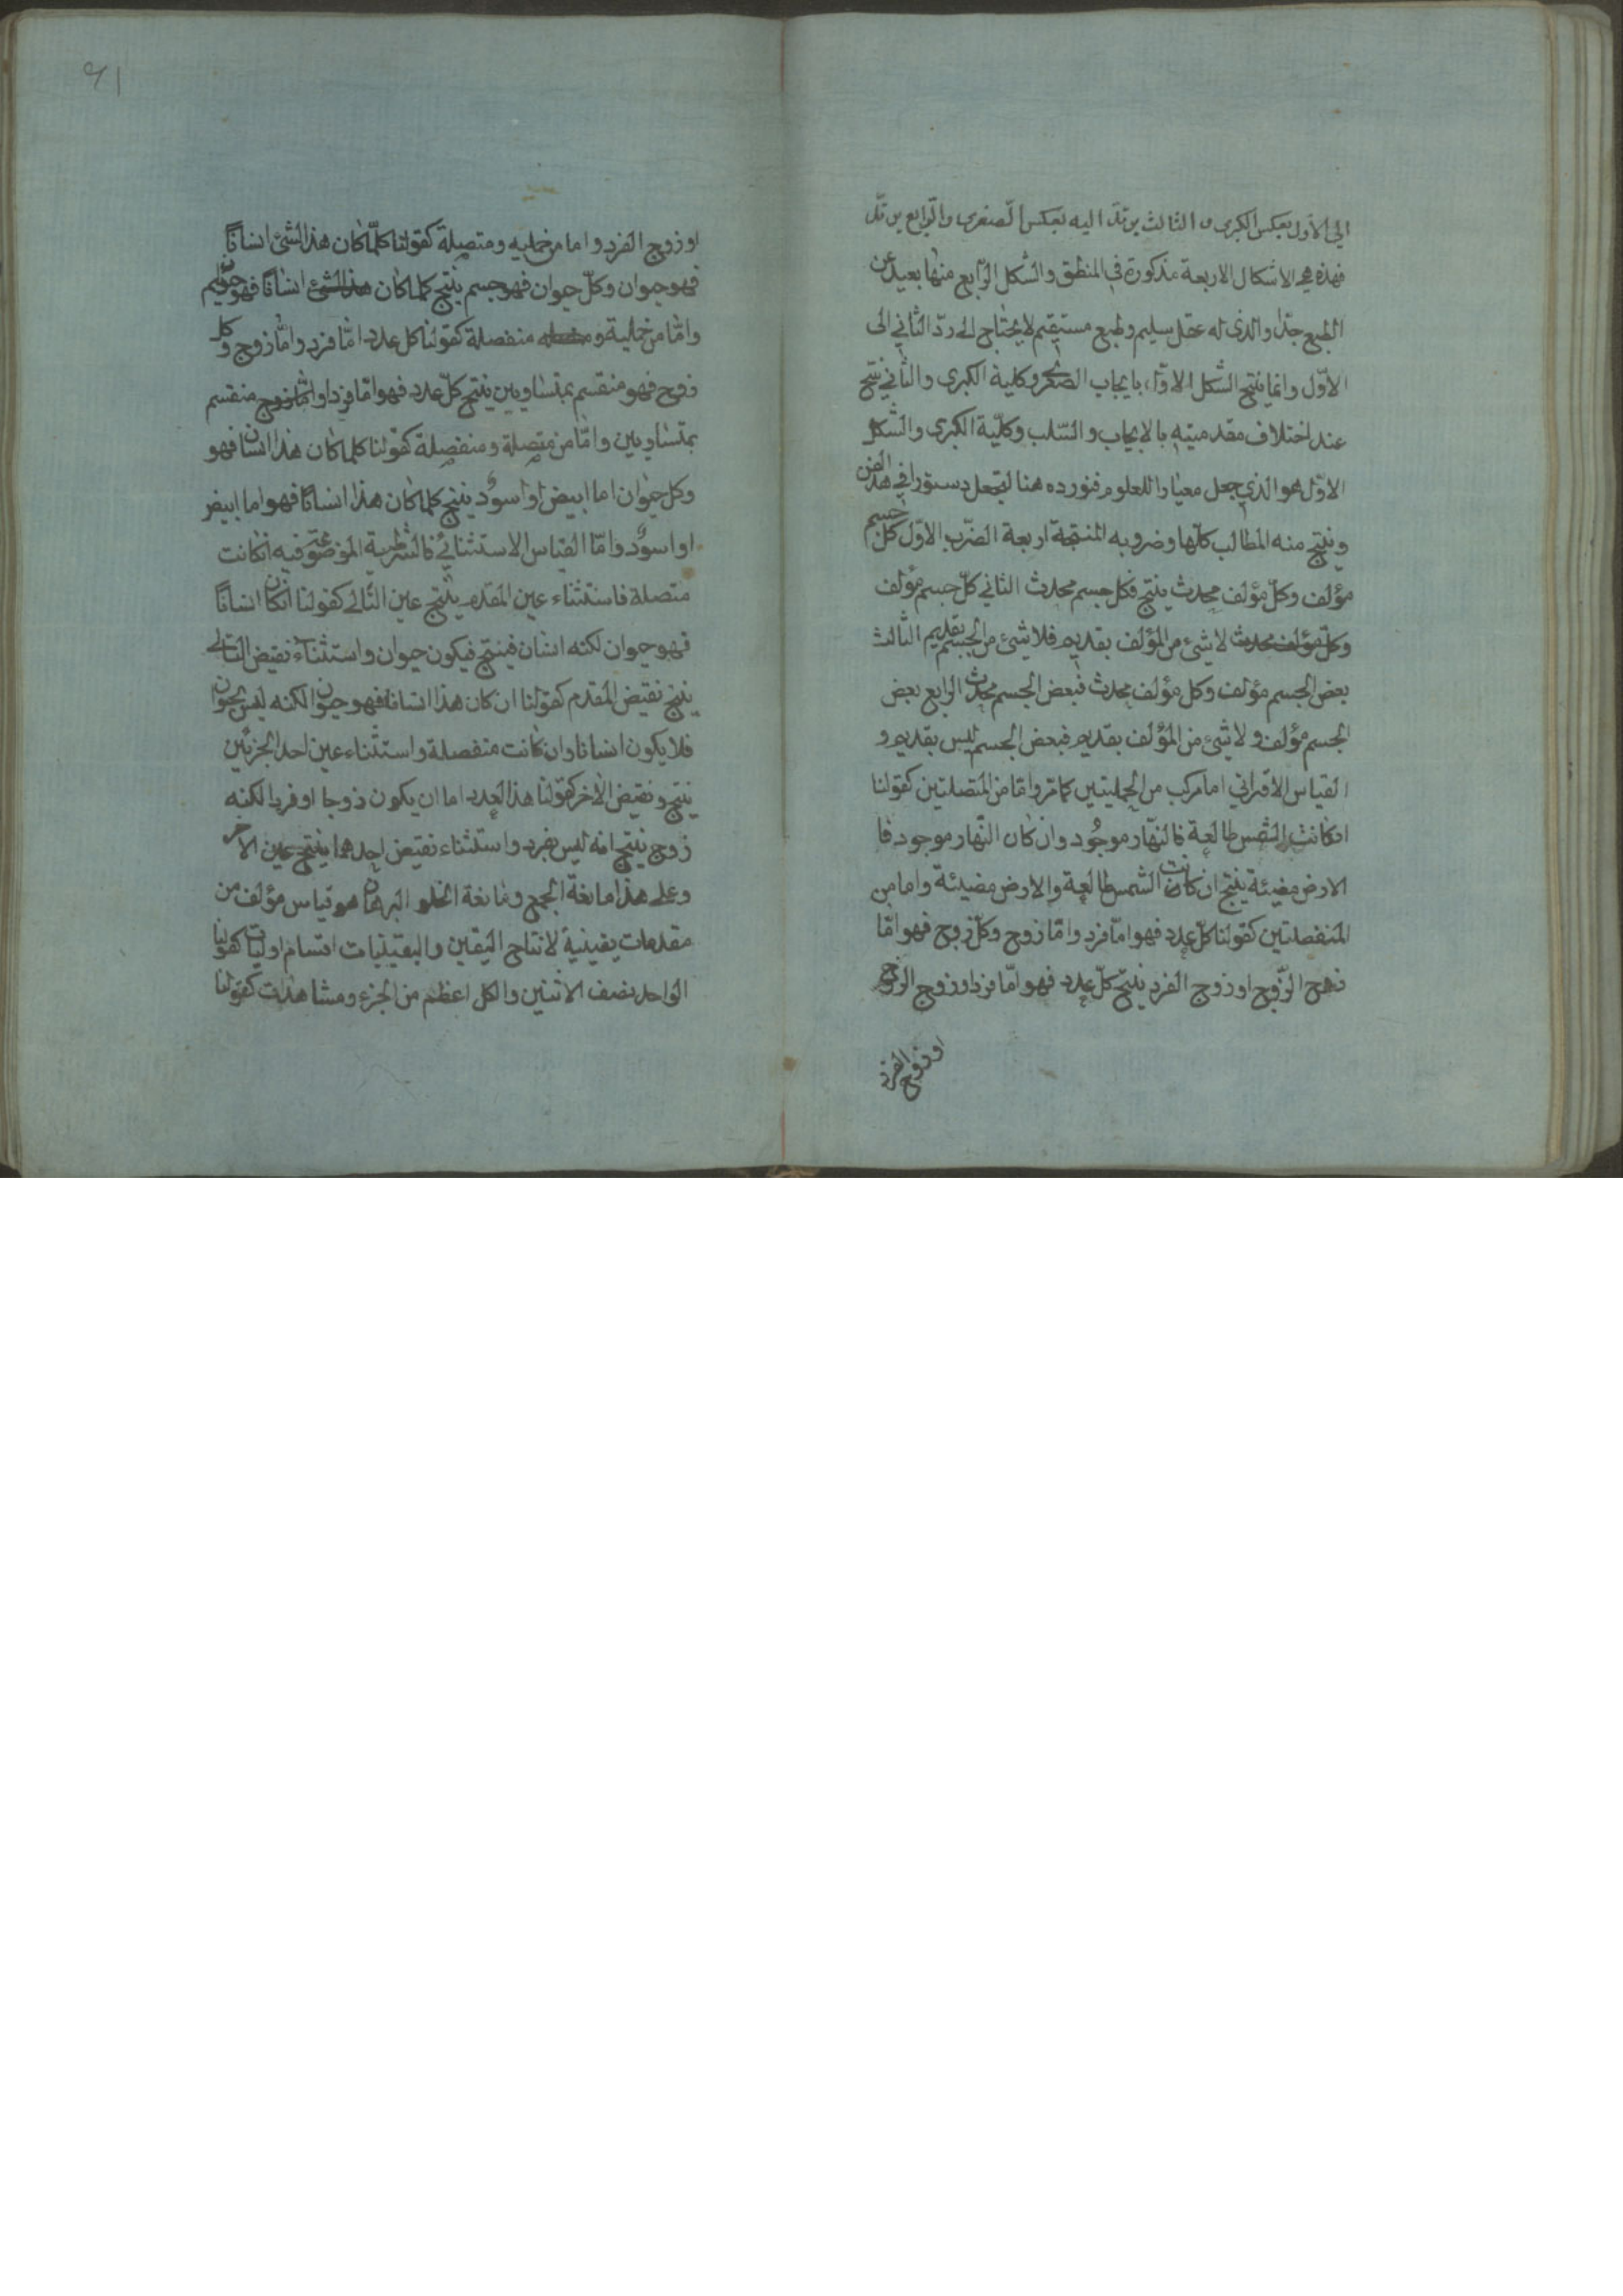 الى الاول بعكس الكبرى و الثالث يرتد اليه بعكس الصغرى والرابع يرتد
فهذه هى الاشكال الاربعة مذكورة في المنطق والشكل الرابع منها بعيد عن
الطبع جدا والذى له عقل سليم وطبع مستقيم لا يحتاج الى ردّ الثاني الى
الاوّل وانما ينتج الشكل الاوّل بايجاب الصغرى وكلية الكبرى والثاني ينتج
عند اختلاف مقدمتيه بالايجاب والسّلب وكلّية الكبرى والشكل
الاوّل هو الذي جعل معيارا للعلوم فنورده هنا لتجعل دستورا في هذا الفن
وينتج منه المطالب كلّها وضروبه المنتجة اربعة الضّرب الاوّل كل جسم
مؤلف وكلّ مؤلف محدث ينتج فكل جسم محدث الثاني كلّ جسم مؤلف
وكلّ مؤلف محدث لا شئ من المؤلف بقديم فلا شئ من الجسم بقديم الثالث
بعض الجسم مؤلف وكل مؤلف محدث فبعض الجسم محدث الرابع بعض
الجسم مؤلف ولا شئ من المؤلف بقديم فبعض الجسم ليس بقديم و
القياس الاقترانى اما مركب من الحمليتين كما مرّ وامّا من المتصلتين كقولنا
انكانت الشمس طالعة فالنهار موجود وان كان النّهار موجود فا
الارض مضيئة ينتج ان كانت الشمس طالعة والارض مضيئة واما من
المنفصلتين كقولنا كلّ عدد فهو امّا فرد وامّا زوج وكلّ زوج فهو امّا
زوج الزّوج او زوج الفرد ينتج كلّ عدد فهو امّا فرد او زوج الزوج
او زوج الفرد
٩١
او زوج الفرد واما من حمليه ومتصلة كقولنا كلّما كان هذا الشئ انسانًا
فهو حيوان وكلّ حيوان فهو جسم ينتج كلما كان هذا الشئ انسانًا فهو جسم
وامّا من حملية و منفصلة كقولنا كل عدد امّا فرد وامّا زوج وكل
زوج فهو منقسم بمتساويين ينتج كلّ عدد فهو امّا فرد او امّا زوج منقسم
بمتساويين وامّا من متصلة ومنفصلة كقولنا كلما كان هذا انسانا فهو
وكل حيوان اما ابيض او اسود ينتج كلما كان هذا انسانًا فهو اما ابيض
او اسود وامّا القياس الاستثنائى فالشرطية الموضوعة فيه انكانت
متصلة فاستثناء عين المقدم ينتج عين التّالى كقولنا انكان انسانًا
فهو حيوان لكنه انسان فينتج فيكون حيوان واستثناء نقيض التالى
ينتج نقيض المقدم كقولنا ان كان هذا انسانا فهو حيوان لكنه ليس بحيوان
فلا يكون انسانا وان كانت منفصلة واستثناء عين احد الجزئين
ينتج ونقيض الآخر كقولنا هذا العدد اما ان يكون زوجا او فردا لكنه
زوج ينتج انه ليس بفرد واستثناء نقيض احدهما ينتج عين الاخر
وعلى هذا مانعة الجمع ومانعة الخلو البرهان هو قياس مؤلف من
مقدمات يقينية لانتاج اليقين واليقينيات اقسام اوليات كقولنا
الواحد نصف الاثنين والكل اعظم من الجزء ومشاهدات كقولنا